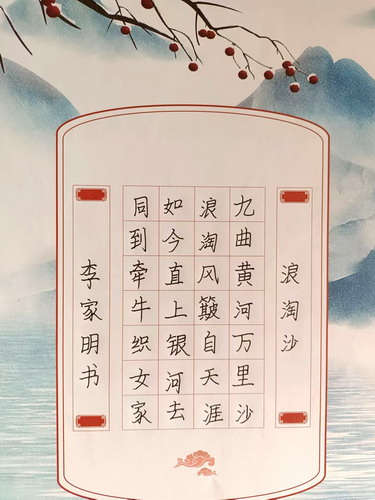 浪淘沙
九曲黄河万里沙
浪淘风簸自天涯
如今直上银河去
同到牵牛织女家
李家明书